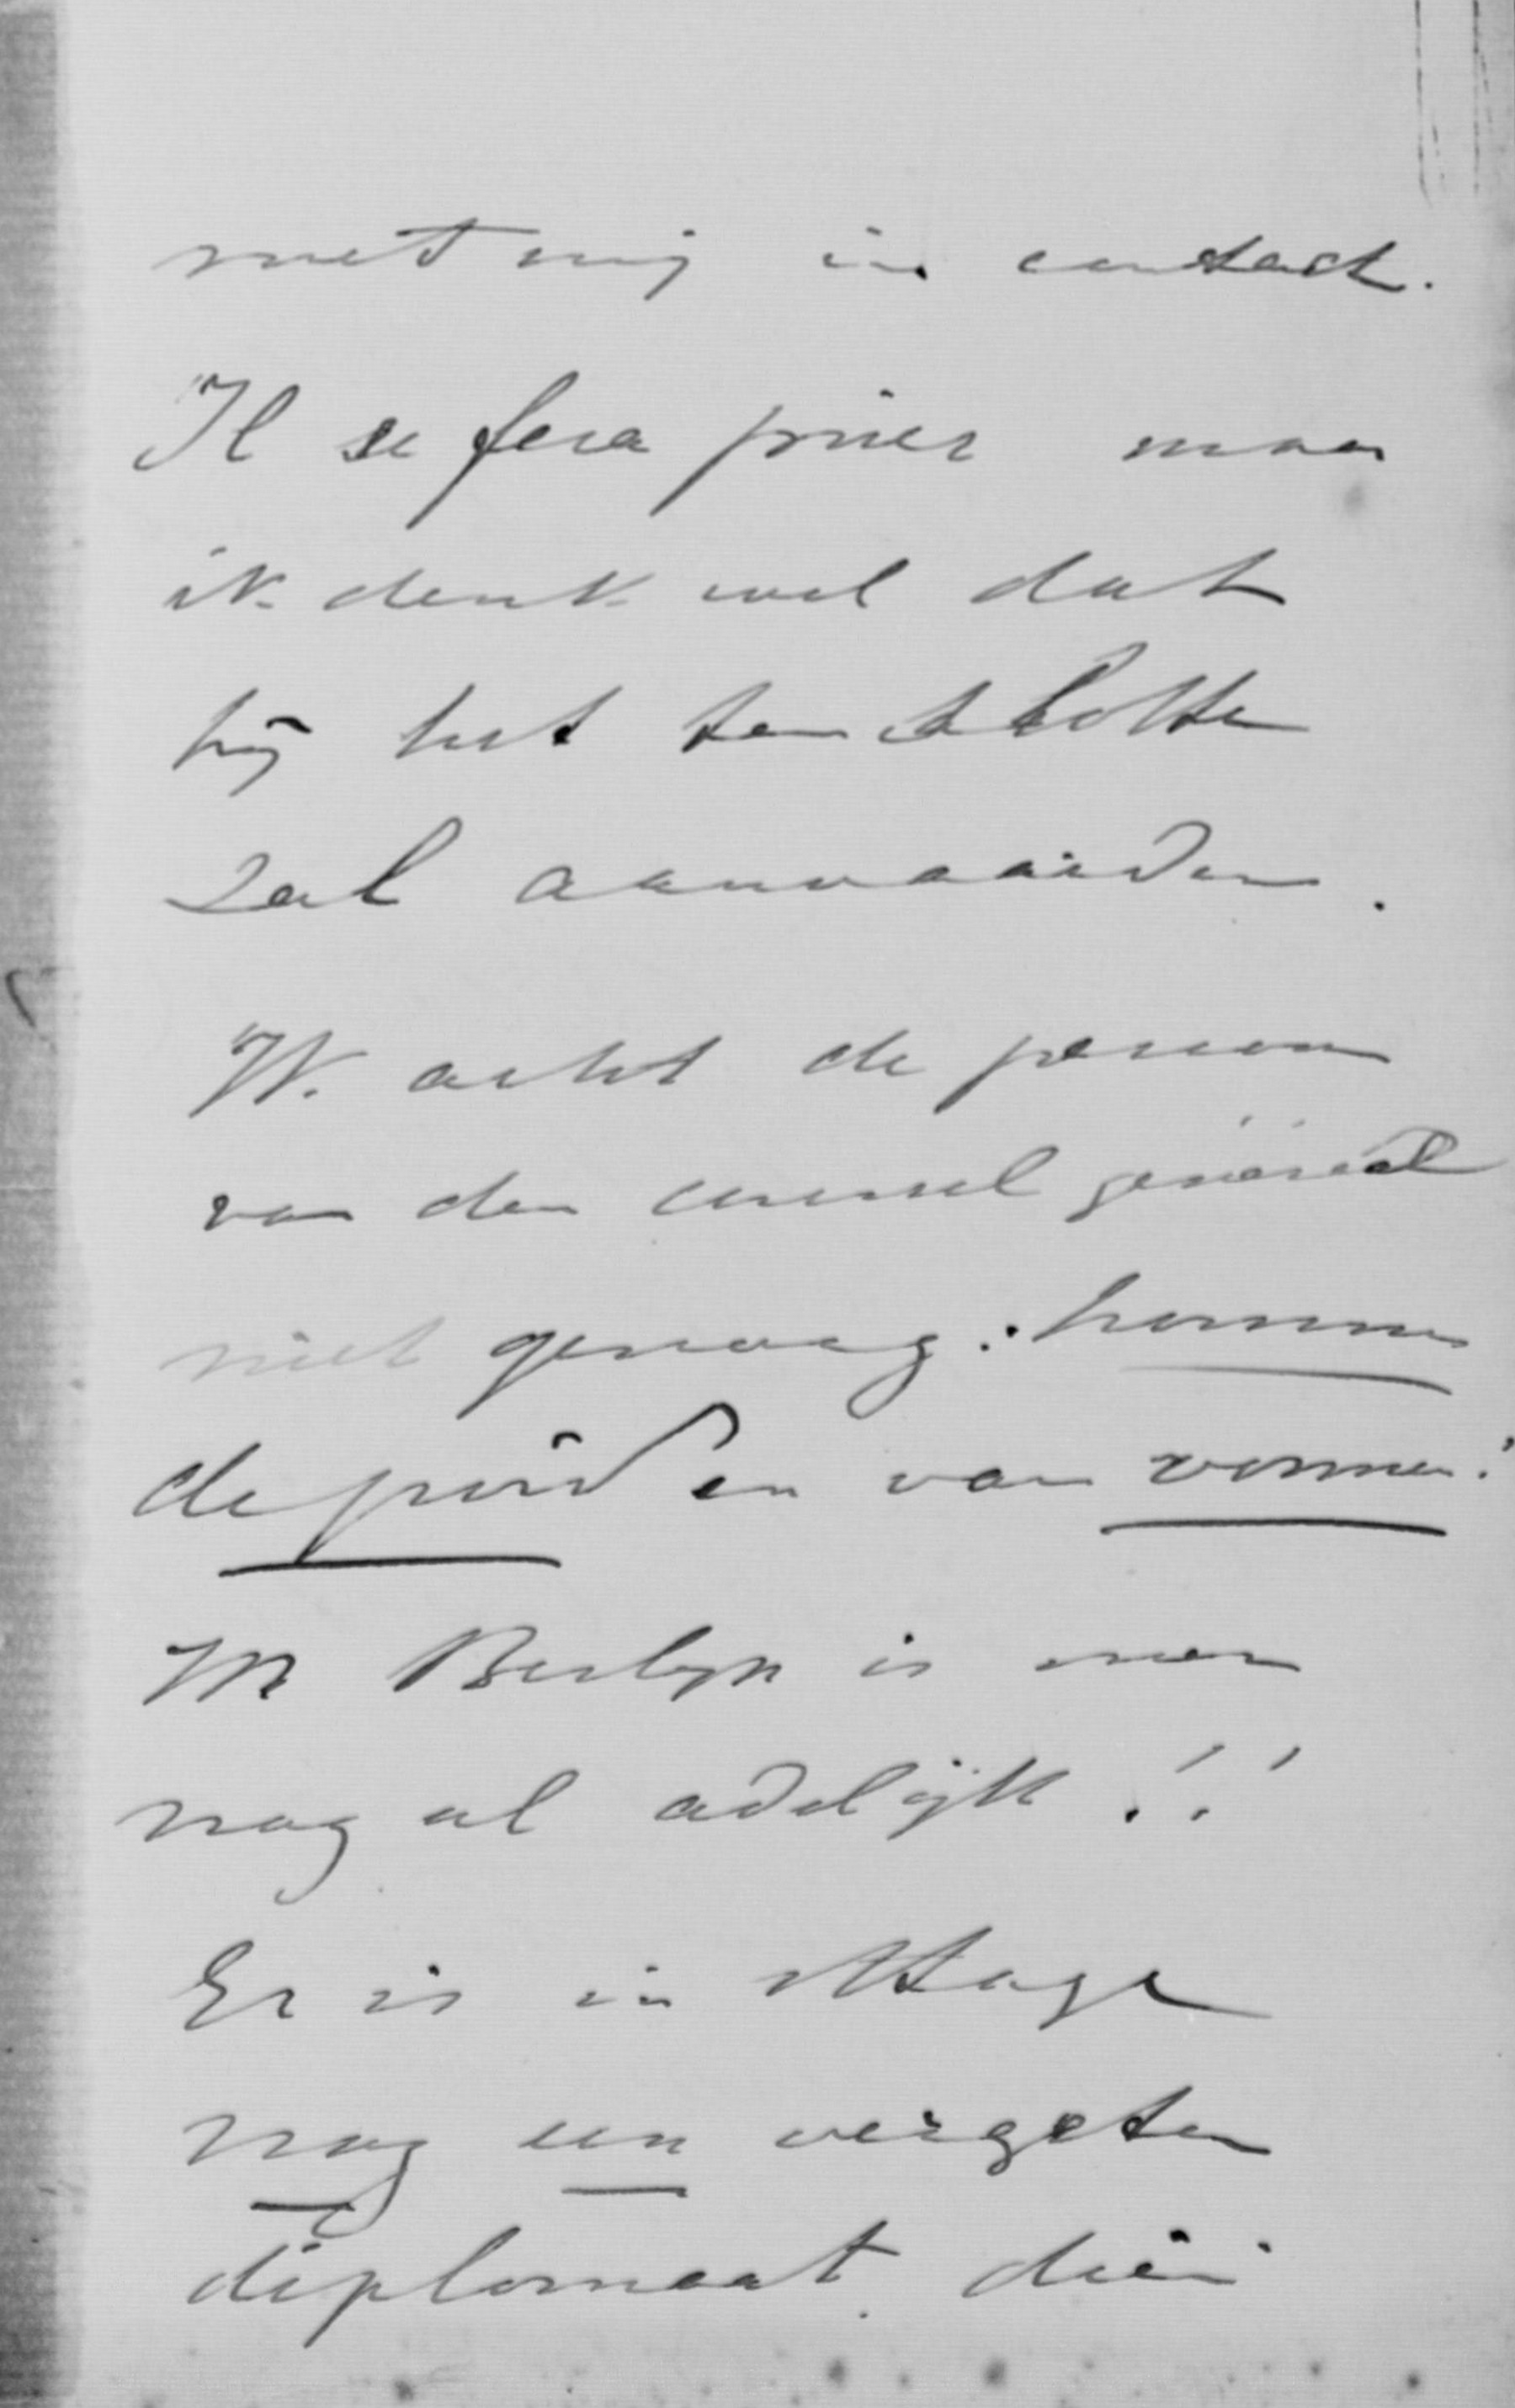 met mij in contact.
Il se fera prier maar
ik denk wel dat
hij het ten slotte
zal aanvaarden.
W. acht de persoon
van den consul generaal
niet genoeg: homme
de poids en van vormen!
In Berlijn is men
nog al adelijk!!
Er is in den Hage
nog een vergeten
diplomaat die in